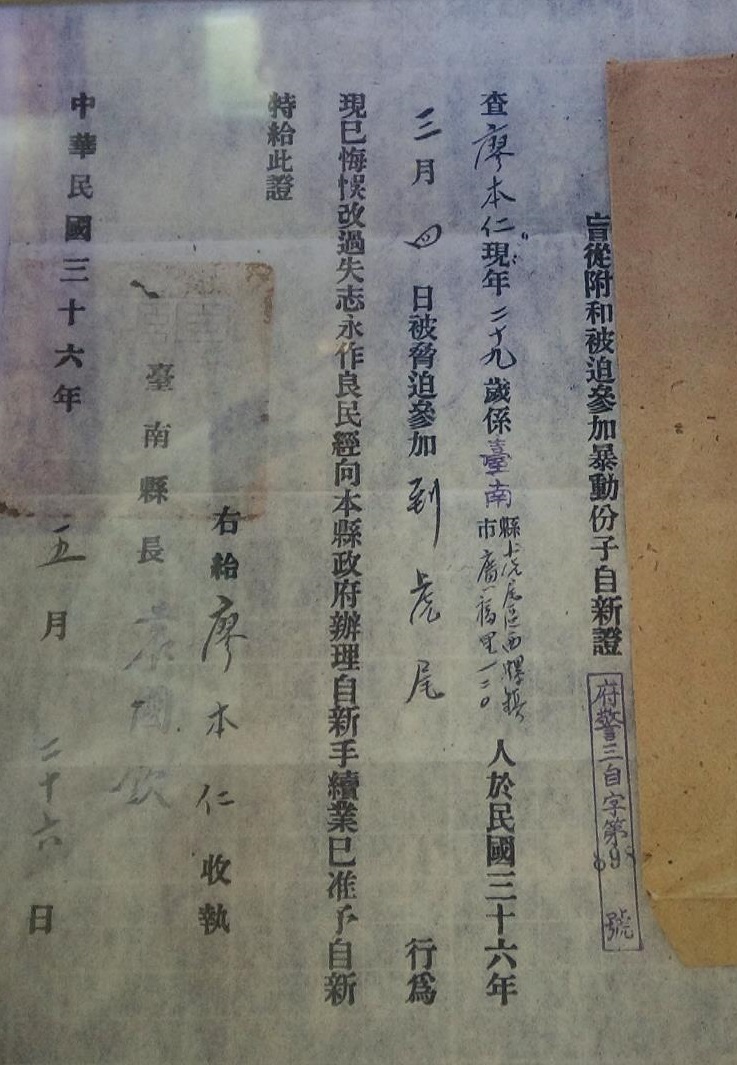 盲從附和被迫參加暴動份子自新證
府警三自字第 號
查廖本仁現年二十九歲係臺南縣市虎尾區西螺鎮廣福里一二〇人於民國三十六年
三月四日被脅迫參加到虎尾行為
現已悔悞改過失志永作良民經向本縣政府辦理自新手續業已准予自新
特給此證
右給廖本仁收執
臺南縣長袁國欽
中華民國三十六年五月二十六日